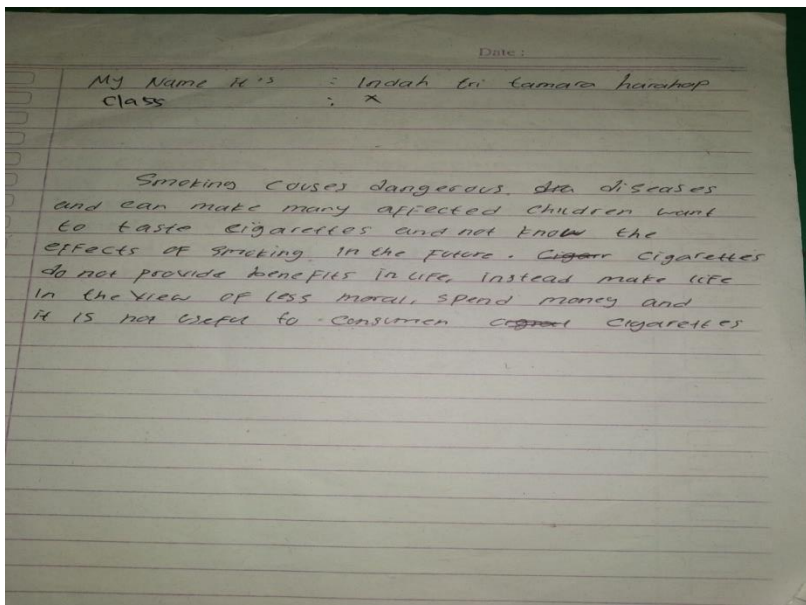 Date :
My Name It's : Indah tri tamara harahap
Class : X
Smoking causes dangerous diseases
and can make many affected children want
to taste cigarettes and not know the
effects of smoking in the future. Cigarettes
do not provide benefits in life, instead make life
in the view of less moral, spend money and
it is not useful to consumen Cigarettes